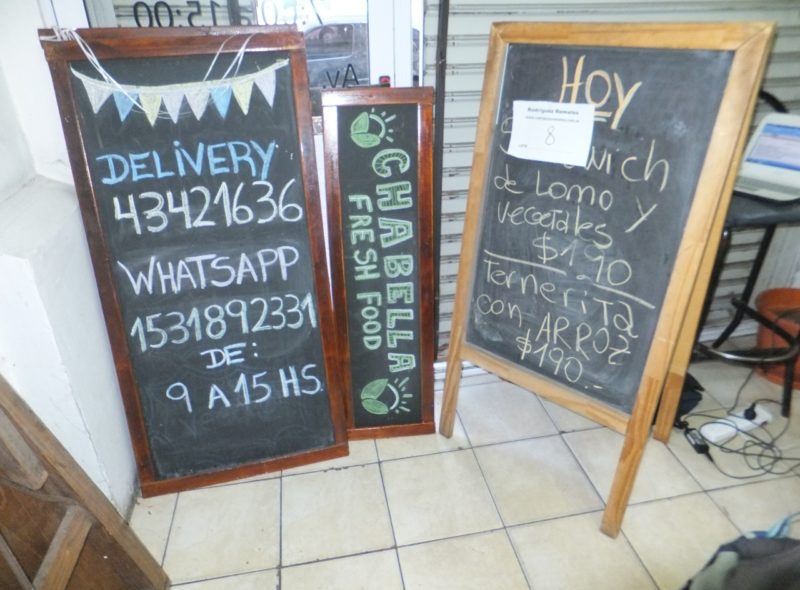 15:00
AV.
DELIVERY
43421636
WHATSAPP
1531892331
DE:
9 A 15 HS.
CHABELLA
FRESH FOOD
HOY
Rodriguez Remates
8
de Lomo y
vegetales
$190
Ternerita
con ARROZ
$190.-